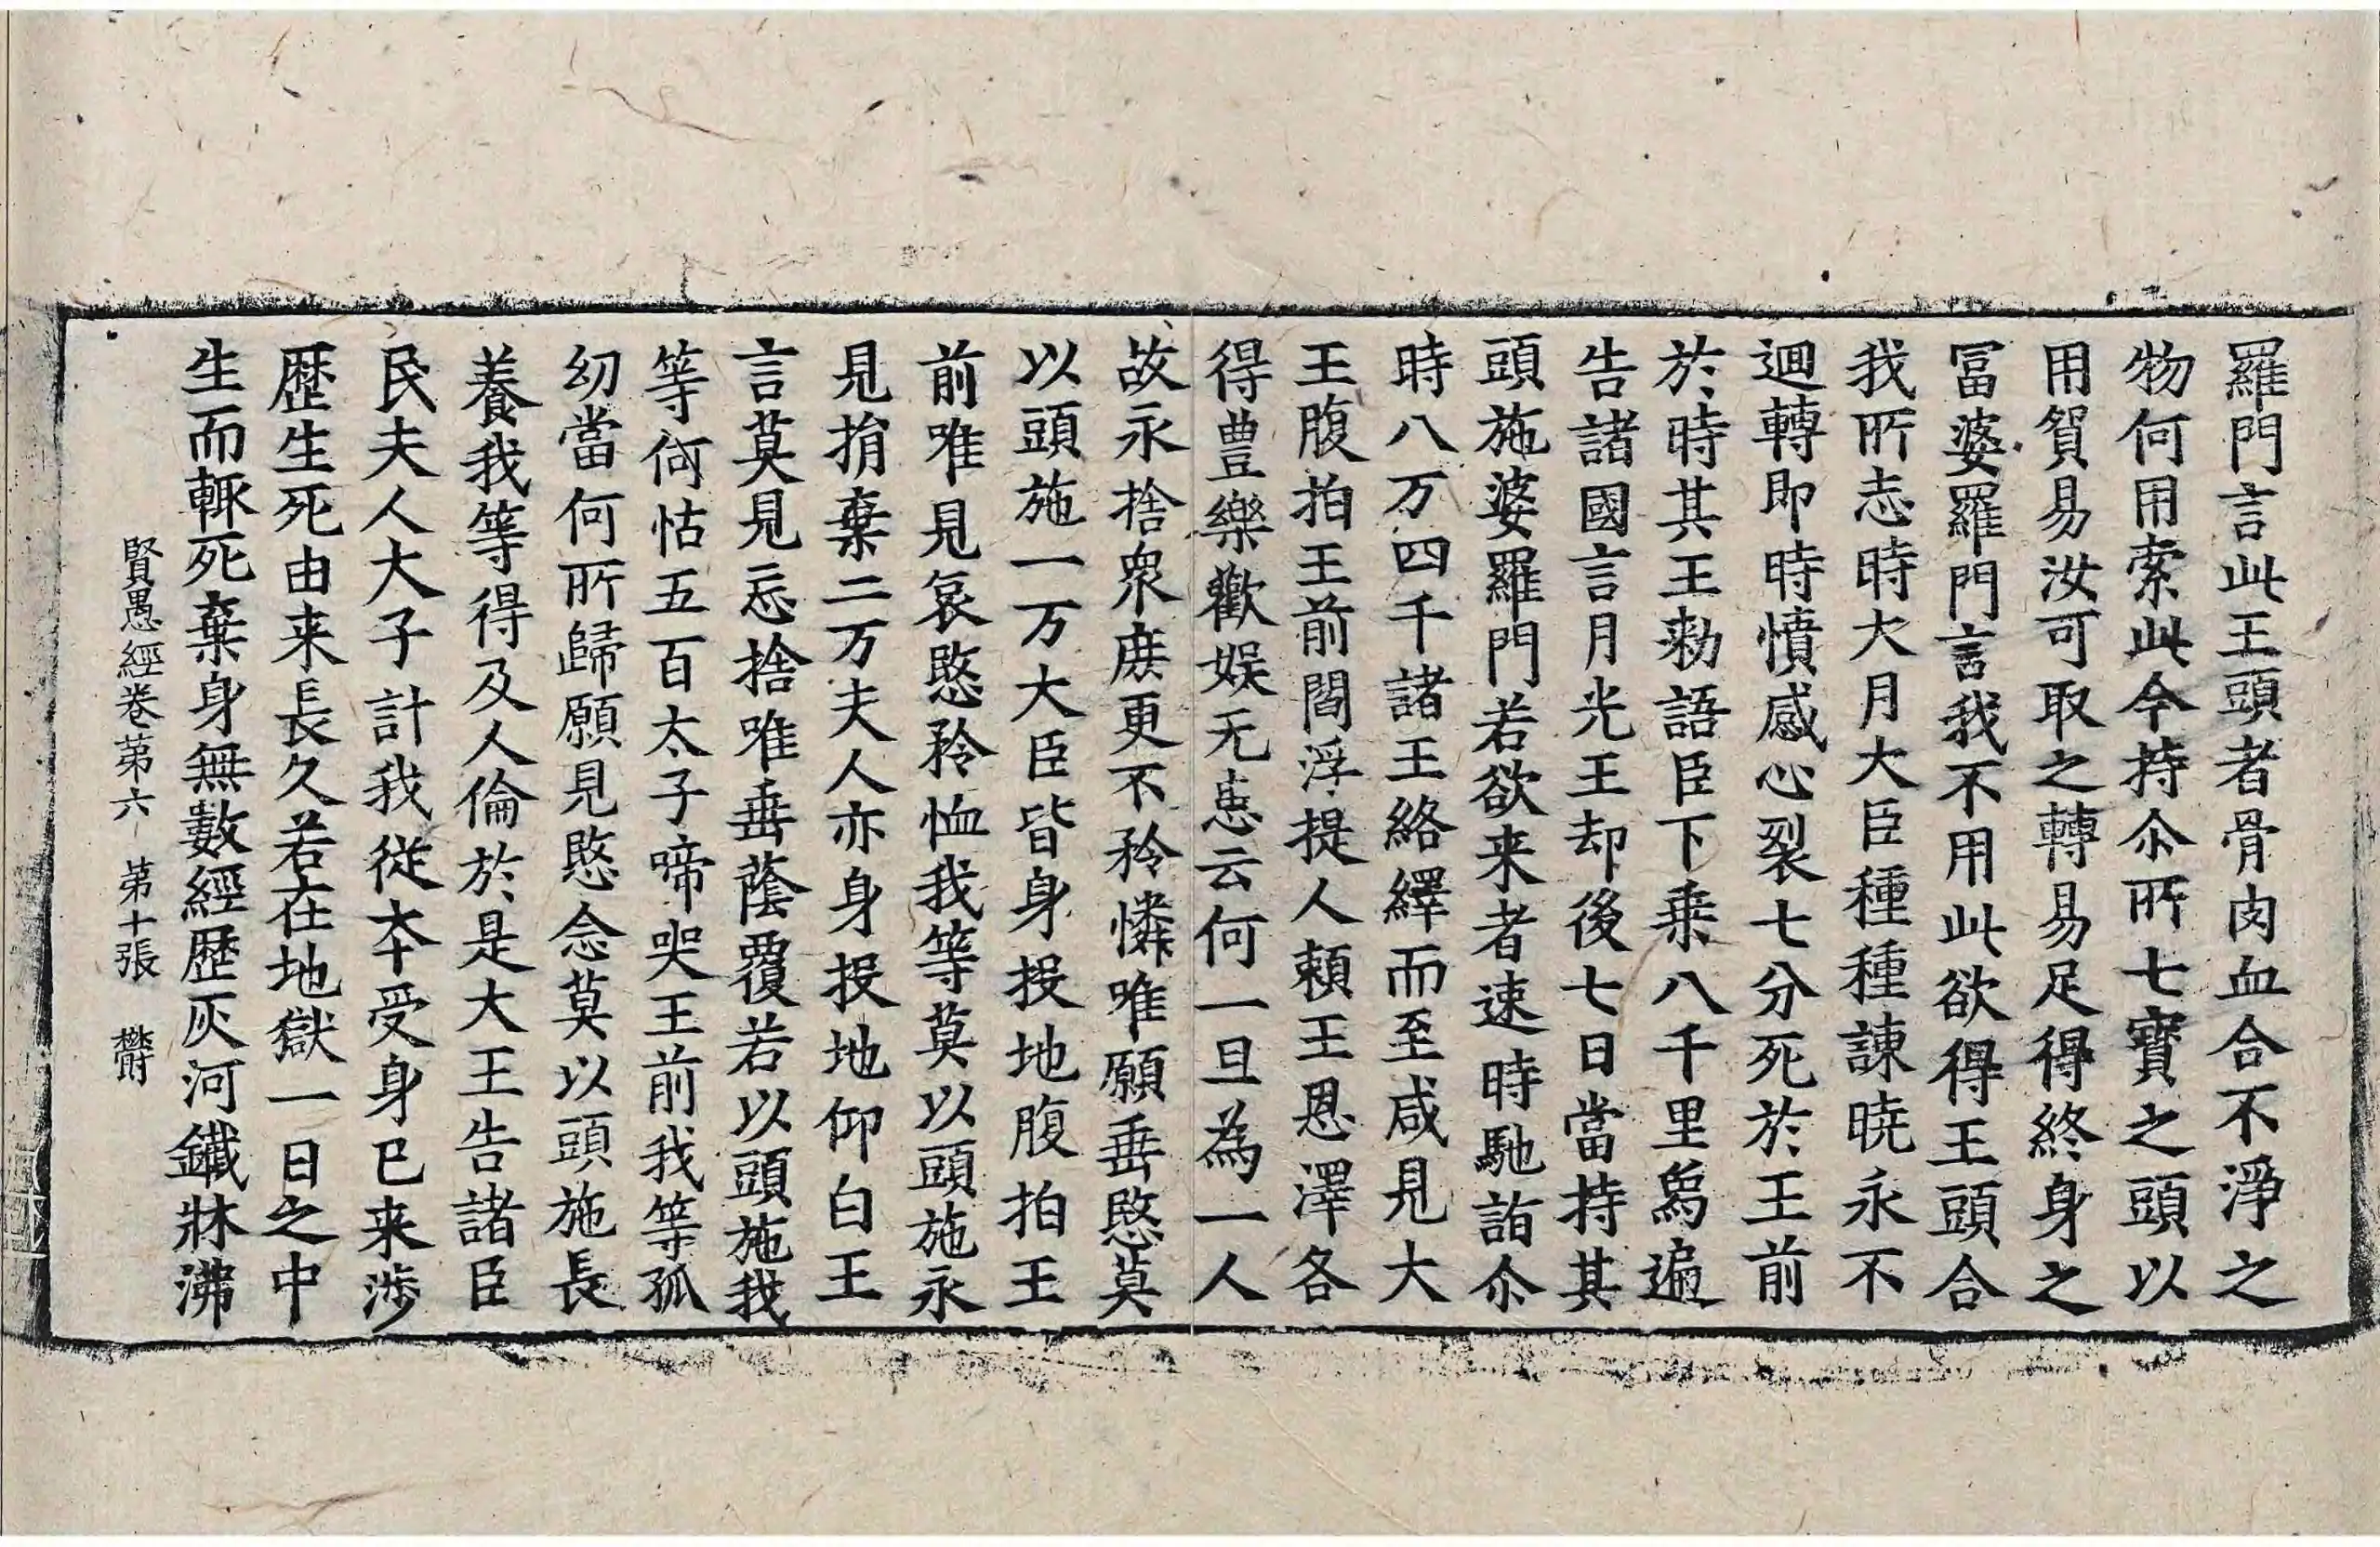 羅門言此王頭者骨肉血合不淨之
物何用索此今持尒所七寶之頭以
用貿易汝可取之轉易足得終身之
冨婆羅門言我不用此欲得王頭合
我所志時大月大臣種種諫曉永不
迴轉即時憤感心裂七分死於王前
於時其王勑語臣下乗八千里鳥遍
告諸國言月光王却後七日當持其
頭施婆羅門若欲来者速時馳詣尒
時八万四千諸王絡繹而至咸見大
王腹拍王前閻浮提人頼王恩澤各
得豊樂歡娱无患云何一旦為一人
故永捨衆庻更不矜憐唯願垂愍莫
以頭施一万大臣皆身投地腹拍王
前唯見哀愍矜恤我等莫以頭施永
見捐棄二万夫人亦身投地仰白王
言莫見忘捨唯垂蔭覆若以頭施我
等何怙五百太子啼哭王前我等孤
幼當何所歸願見愍念莫以頭施長
養我等得及人倫於是大王告諸臣
民夫人大子計我從本受身已来渉
歷生死由来長久若在地獄一日之中
生而輙死棄身無數經歷灰河鐵牀沸
賢愚經卷第六 第十張 欝